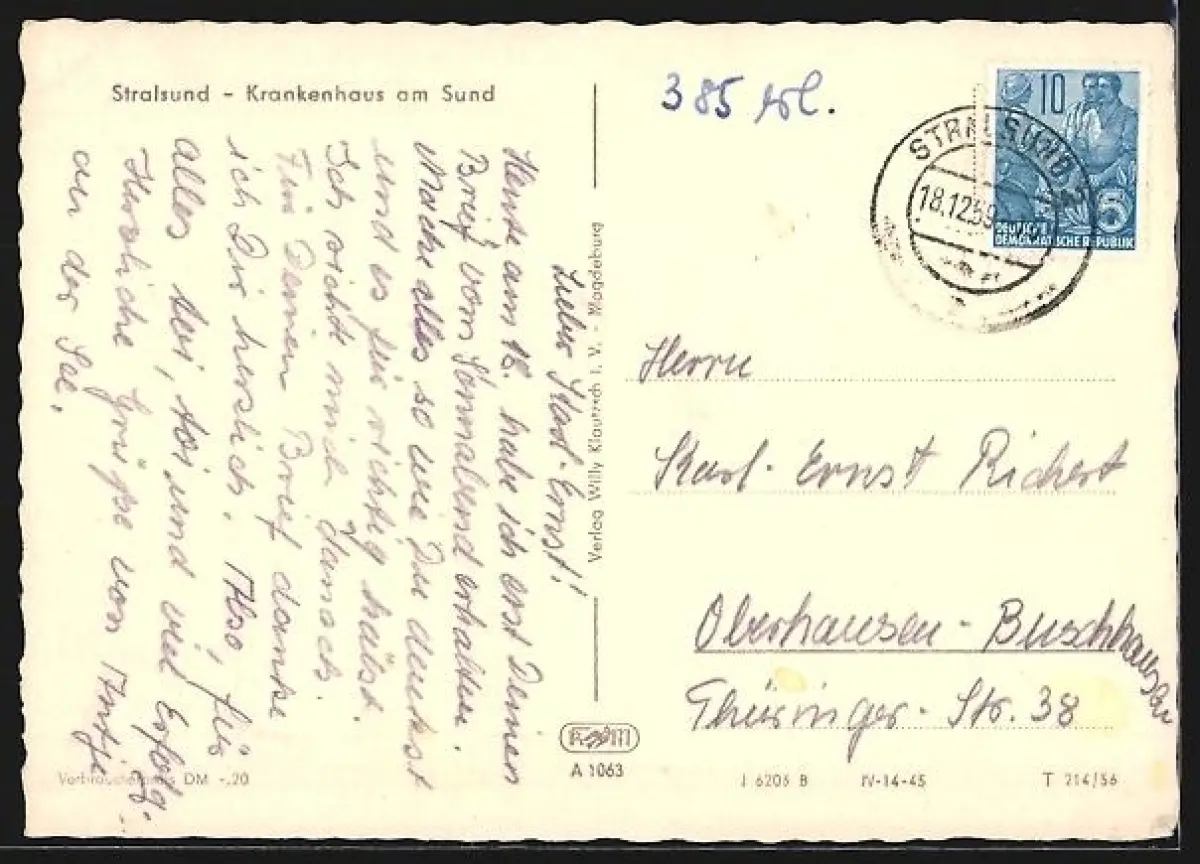 Stralsund - Krankenhaus am Sund
385 erl.
10
5
DEUTSCHE
DEMOKRATISCHE REPUBLIK
STRALSUND 2
18.12.59
Lieber Karl-Ernst!
Heute am 18. habe ich erst Deinen
Brief vom Sonnabend erhalten.
Mache alles so wie Du denkst
und es für richtig hälst.
Ich richte mich danach.
Für Deinen Brief danke
ich Dir herzlich. Also, für
alles toi, toi und viel Erfolg.
Herzliche Grüße von Antje
an der See.
Verlag Willy Klautzsch i. V. - Magdeburg
Herrn
Karl-Ernst Richert
Oberhausen-Buschhausen
Thüringer-Str. 38
Verbraucherpreis DM -.20
A 1063
J 6206 B
IV-14-45
T 214/56